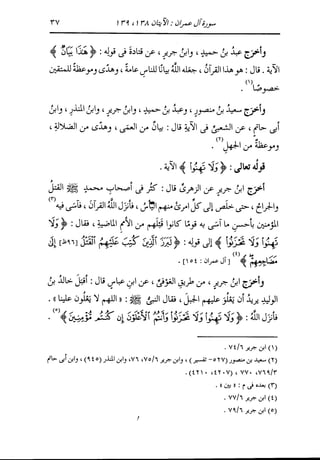 سورة آل عمران : الآيتان ١٣٨ ، ١٣٩
٣٧
وأخرج عبدُ بنُ حميدٍ ، وابنُ جريرٍ ، عن قتادةَ فى قولِه : ﴿ هَٰذَا بَيَانٌ ﴾
الآية . قال : هو هذا القرآنُ ، جعَله اللهُ بيانًا للناسِ عامةً ، وهدًى وموعظةً للمتقين
خصوصًا (١) .
وأخرج سعيدُ بنُ منصورٍ ، وعبدُ بنُ حميدٍ ، وابنُ جريرٍ ، وابنُ المنذرِ ، وابنُ
أبى حاتمٍ ، عن الشعبىِّ فى الآيةِ قال : بيانٌ من العمَى ، وهدًى من الضلالةِ ،
وموعظةٌ من الجهلِ (٢) .
قولُه تعالى : ﴿ وَلَا تَهِنُوا ﴾ الآية .
أخرج ابنُ جريرٍ عن الزهرىِّ قال : كثُر فى أصحابِ محمدٍ ﷺ القتلُ
والجراحُ ، حتى خلَص إلى كلِّ امرئٍ منهم اليأسُ ، فأنزَل اللهُ القرآنَ ، فآسَى فيه (٣)
المؤمنين بأحسنِ ما آسَى به قومًا كانوا قبلَهم من الأممِ الماضيةِ ، فقال : ﴿ وَلَا
تَهِنُوا وَلَا تَحْزَنُوا ﴾ إلى قولِه : ﴿ لَبَرَزَ الَّذِينَ كُتِبَ عَلَيْهِمُ الْقَتْلُ [٩٦ظ] إِلَىٰ
مَضَاجِعِهِمْ ﴾ (٤) [ آل عمران : ١٥٤ ] .
وأخرج ابنُ جريرٍ ، من طريقِ العَوفىِّ ، عن ابنِ عباسٍ قال : أقبَل خالدُ بنُ
الوليدِ يريدُ أن يعلوَ عليهم الجبلَ ، فقال النبىُّ ﷺ : « اللهم لا يعلون علينا » .
فأنزَل اللهُ : ﴿ وَلَا تَهِنُوا وَلَا تَحْزَنُوا وَأَنتُمُ الْأَعْلَوْنَ إِن كُنتُم مُّؤْمِنِينَ ﴾ (٥) .
(١) ابن جرير ٧٤/٦ .
(٢) سعيد بن منصور (٥٢٧ - تفسير) ، وابن جرير ٧٥/٦ ، ٧٦ ، وابن المنذر (٩٤٥) ، وابن أبى حاتم
٧٦٩/٣ ، ٧٧٠ (٤٢٠٧ ، ٤٢١٠) .
(٣) بعده فى م : « بين » .
(٤) ابن جرير ٧٧/٦ .
(٥) ابن جرير ٧٩/٦ .